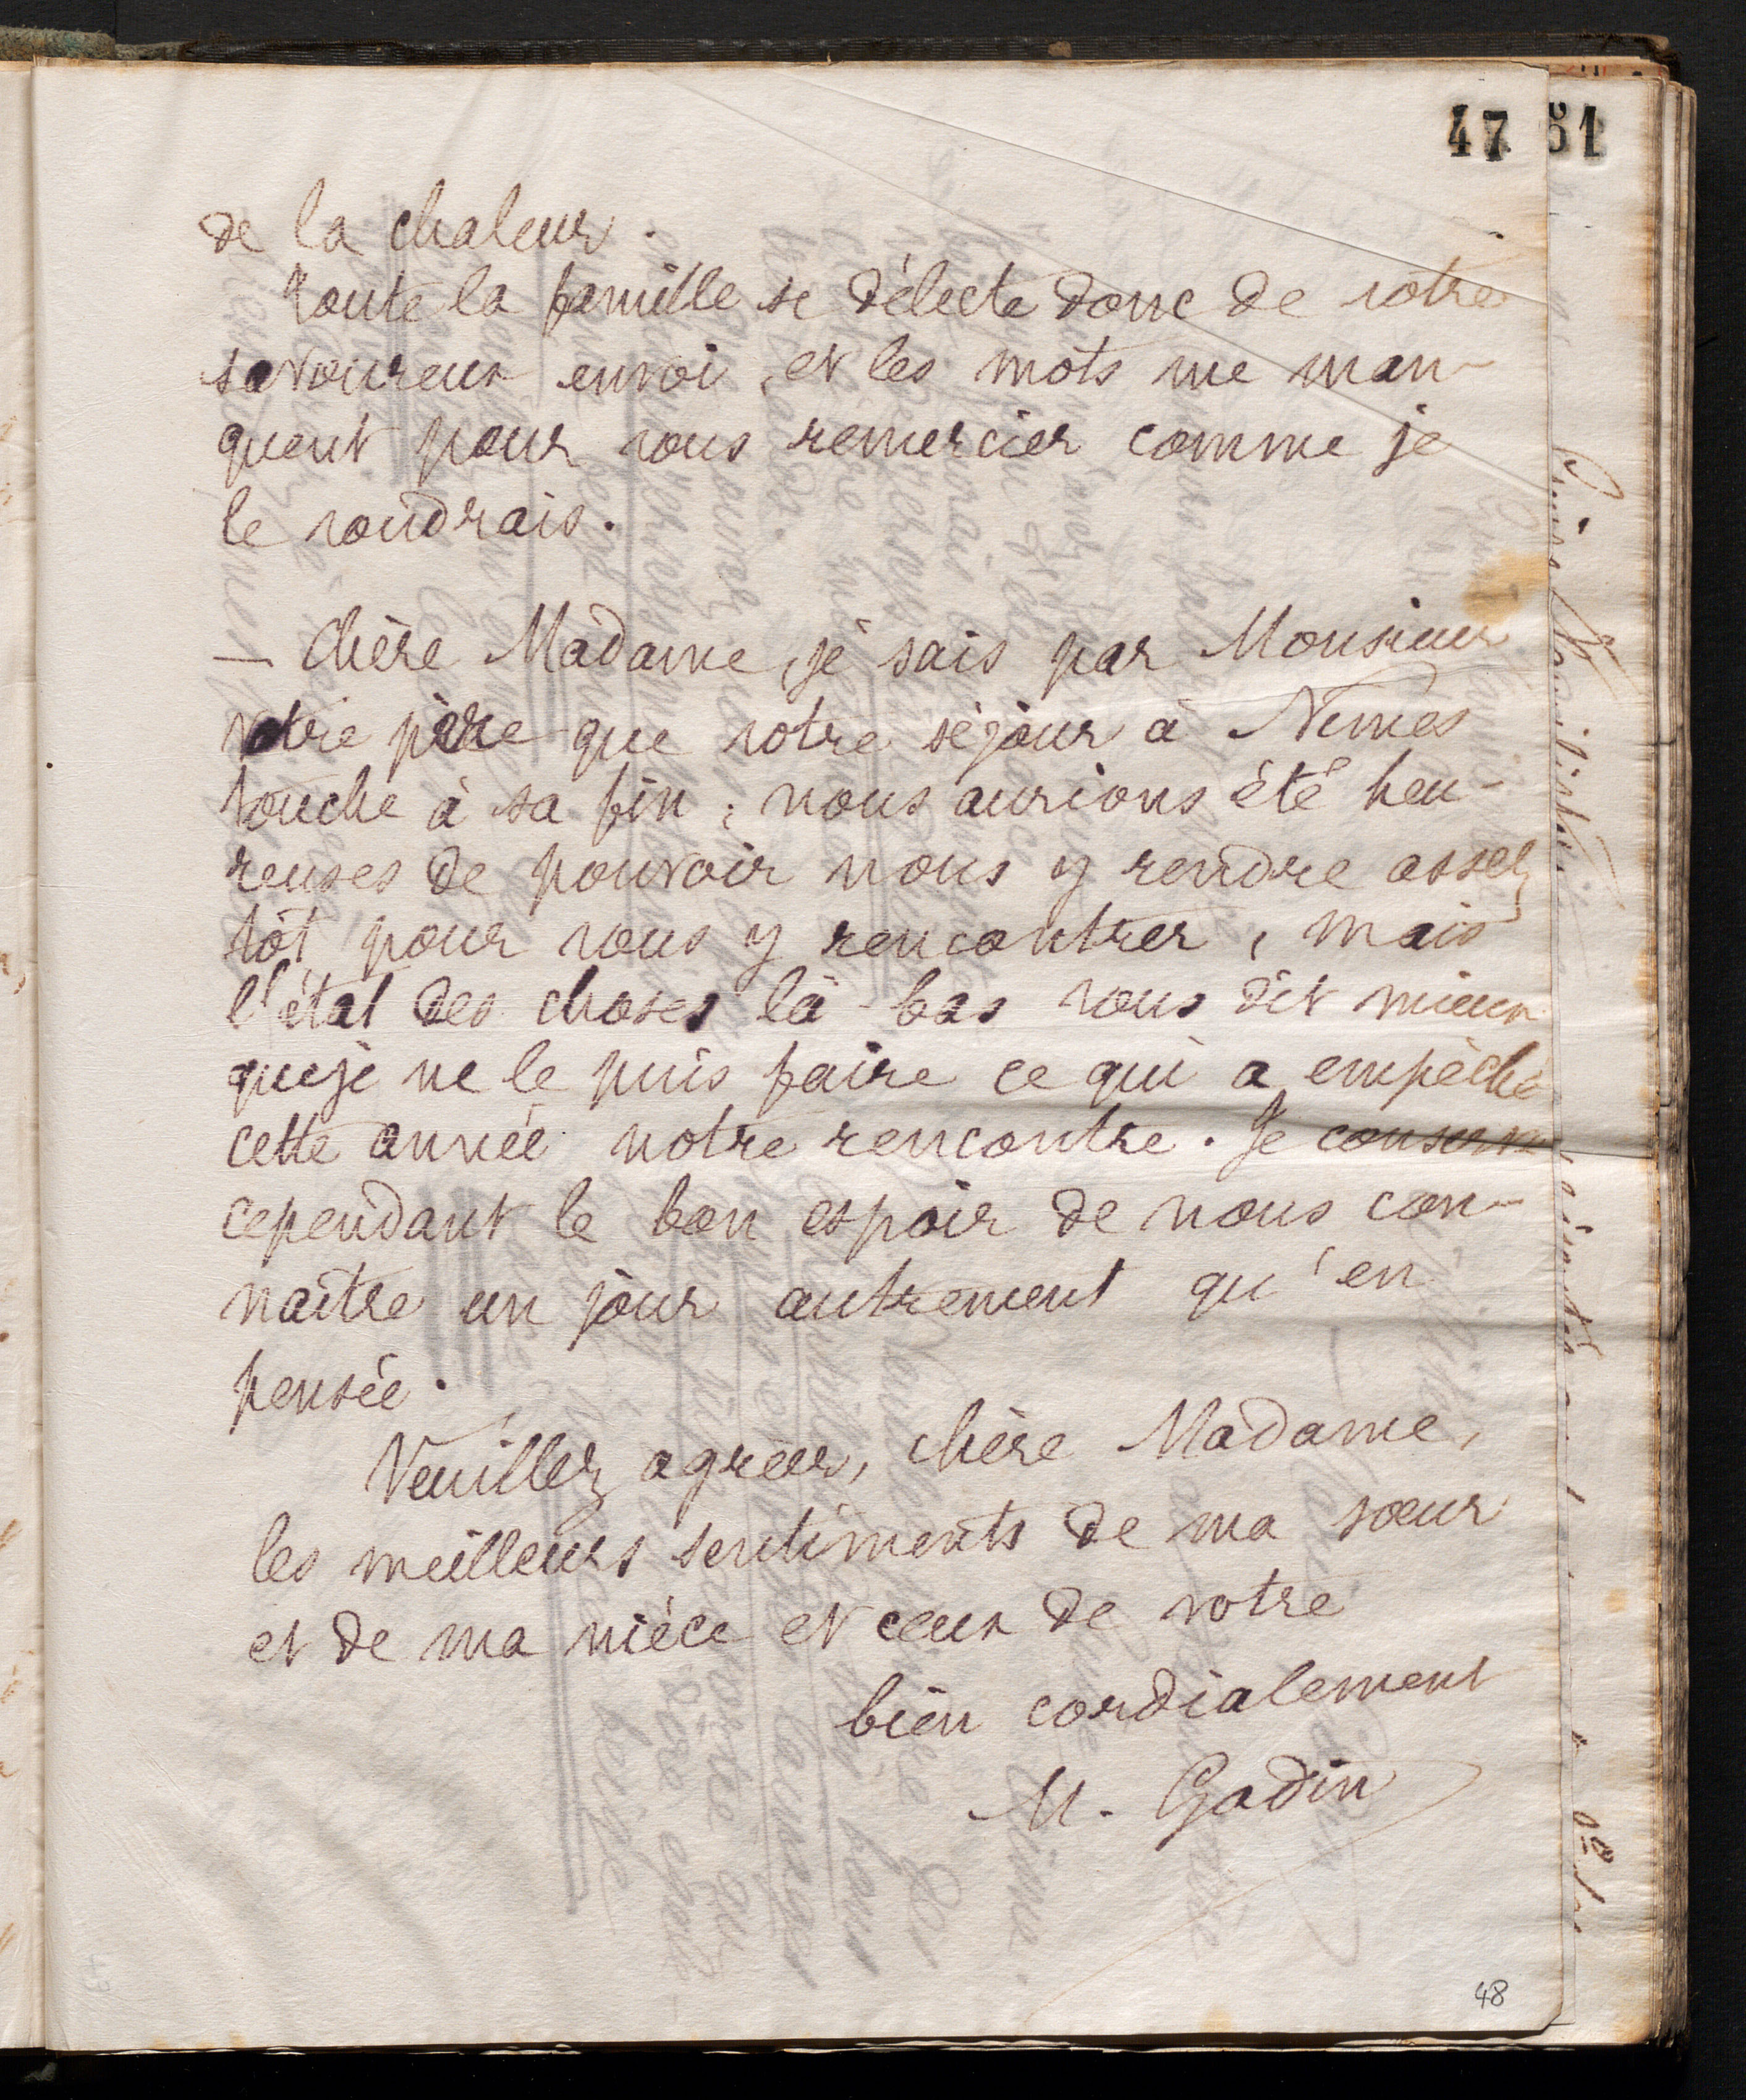 47 61
de la chaleur.
Toute la famille se délecte donc de votre
savoureux envoi, et les mots me man-
quent pour vous remercier comme je
le voudrais.
— Chère Madame, je sais par Monsieur
votre père que votre séjour à Nîmes
touche à sa fin ; nous aurions été heu-
reuses de pouvoir nous y rendre assez
tôt pour vous y rencontrer, mais
l'état des choses là-bas vous dit mieux
que je ne le puis faire ce qui a empêché
cette année notre rencontre. Je conserve
cependant le bon espoir de nous con-
naître un jour autrement qu'en
pensée.
Veuillez agréer, chère Madame,
les meilleurs sentiments de ma sœur
et de ma nièce et ceux de votre
bien cordialement
M. Gadin
48